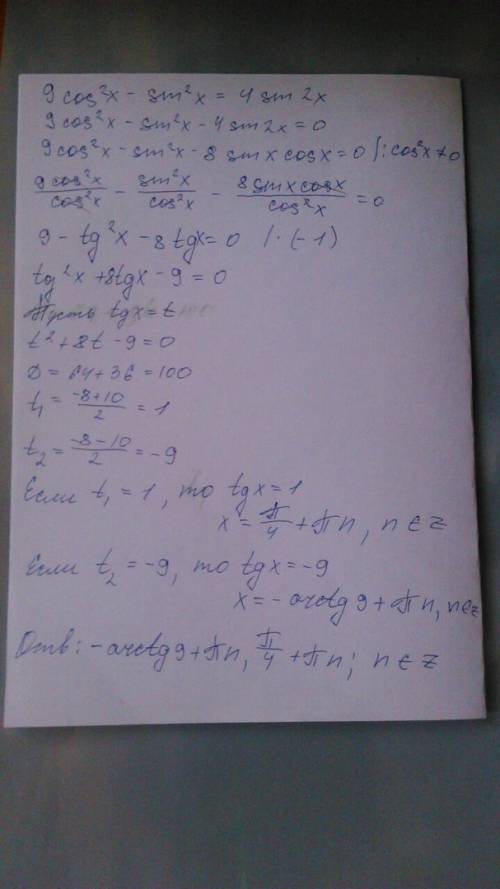 9cos²x - sin²x = 4 sin 2x
9cos²x - sin²x - 4 sin 2x = 0
9cos²x - sin²x - 8 sin x cos x = 0 /: cos²x ≠ 0
9cos²x/cos²x - sin²x/cos²x - 8 sin x cos x/cos²x = 0
9 - tg²x - 8 tgx = 0 /· (-1)
tg²x + 8tgx - 9 = 0
Пусть tgx = t
t² + 8t - 9 = 0
D = 64 + 36 = 100
t₁ = (-8+10)/2 = 1
t₂ = (-8-10)/2 = -9
Если t₁ = 1, то tgx = 1
x = π/4 + πn, n ∈ z
Если t₂ = -9, то tgx = -9
x = - arctg 9 + πn, n∈z
Отв: - arctg 9 + πn, π/4 + πn; n ∈ z